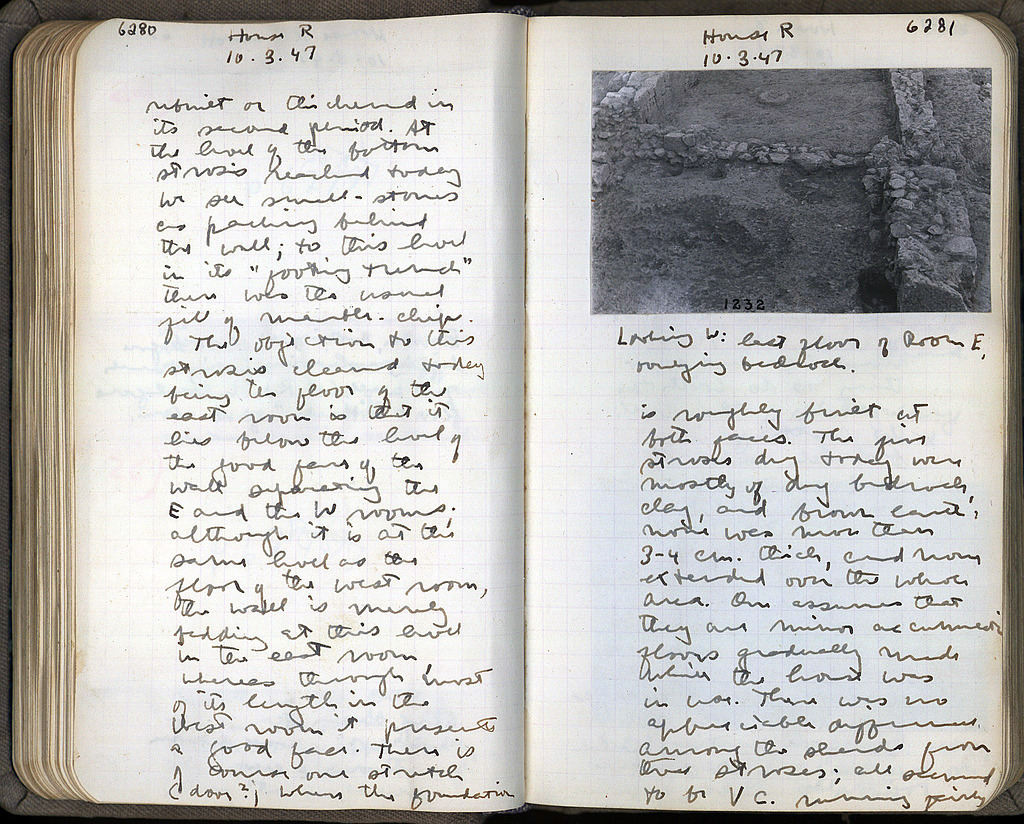 6280
House R
10.3.47
rebuilt or thickened in
its second period. At
the level of the bottom
strosis reached today
we see small-stones
as packing behind
the wall; to this level
in its "footing trench"
there was the usual
fill of marble-chips.
The objection to this
strosis cleaned today
being the floor of the
east room is that it
lies below the level of
the good face of the
wall separating the
E and the W rooms;
although it is at the
same level as the
floor of the west room,
the wall is merely
bedding at this level
in the east room,
whereas through most
of its length in the
west room it presents
a good face. There is
of course one stretch
(door?) where the foundation
6281
House R
10.3.47
1232
Looking W: last floor of Room E,
overlying bedrock.
is roughly built at
both faces. The five
stroses dug today were
mostly of dug bedrock,
clay, and brown earth;
none was more than
3-4 cm. thick, and none
extended over the whole
area. One assumes that
they are minor
floors gradually made
while the house was
in use. There was no
appreciable difference
among the sherds from
these stroses; all seemed
to be V C. running